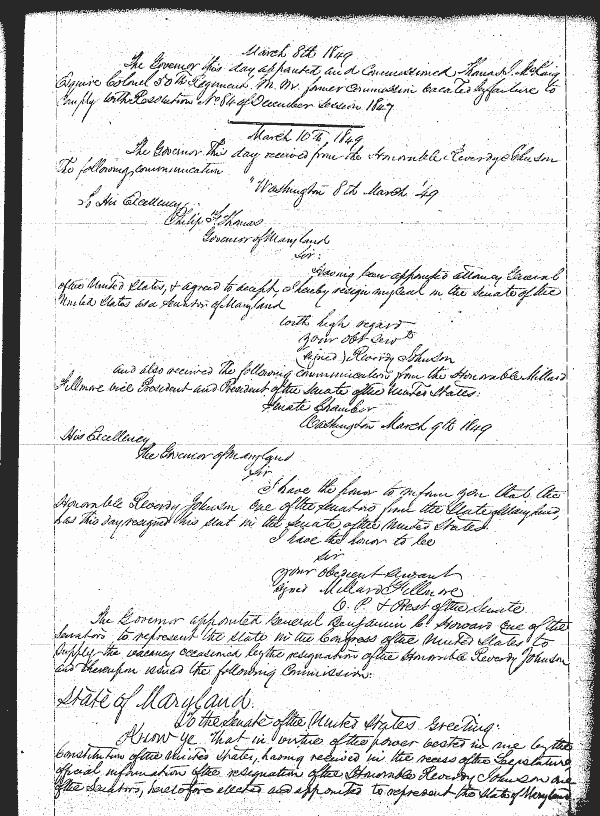 March 8th 1849
The Governor this day appointed and Commissioned Thomas J. McKaig
Esquire Colonel 50th Regiment M. M. former Commission vacated by failure to
Comply with Resolution No 84 of December Session 1847
March 10th 1849
The Governor this day received from the Honorable Reverdy Johnson
The following communication
"Washington 8th March '49
To His Excellency
Philip F. Thomas
Governor of Maryland
Sir:
Having been appointed Attorney General
of the United States, & agreed to accept, I hereby resign my seat in the Senate of the
United States as a Senator of Maryland
With high regard
your obt servt
(signed) Reverdy Johnson
and also received the following communication from the Honorable Millard
Fillmore vice President and President of the Senate of the United States:
Senate Chamber
Washington March 9th 1849
His Excellency
The Governor of Maryland
Sir
I have the honor to inform you that the
Honorable Reverdy Johnson one of the Senators from the State of Maryland,
has this day resigned his seat in the Senate of the United States.
I have the honor to be
Sir
your obedient servant
signed Millard Fillmore
V. P. & Prest of the Senate
The Governor appointed General Benjamin C. Howard one of the
Senators to represent the State in the Congress of the United States to
supply the vacancy occasioned by the resignation of the Honorable Reverdy Johnson
and thereupon issued the following Commission:
State of Maryland.
To the Senate of the United States Greeting:
Know ye that in virtue of the power vested in me by the
Constitution of the United States, having received in the recess of the Legislature
official information of the resignation of the Honorable Reverdy Johnson one
of the Senators, heretofore elected and appointed to represent the State of Maryland